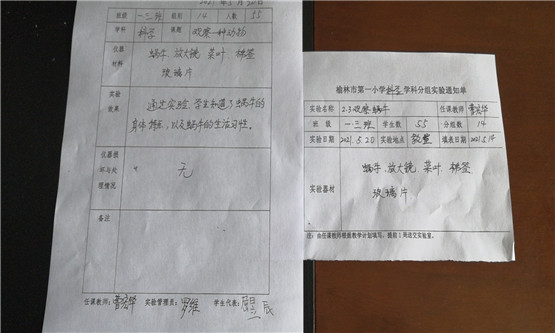 2021年5月20日
班级 一.三班 组别 14 人数 55
学科 科学 课题 观察一种动物
仪器材料
蜗牛 放大镜 菜叶 梯签
玻璃片
实验效果
通过实验,学生知道了蜗牛的
身体特点,以及蜗牛的生活习性。
仪器损坏与处理情况
无
备注
任课教师: 实验管理员: 罗维 学生代表:
榆林市第一小学科学学科分组实验通知单
实验名称 2.3观察蜗牛 任课教师
班级 一.三班 学生数 55 分组数 14
实验日期 2021.5.20 实验地点 教室 填表日期 2021.5.14
实验器材
蜗牛、放大镜、菜叶 梯签
玻璃片
注:由任课教师根据教学计划填写,提前1周送交实验室。